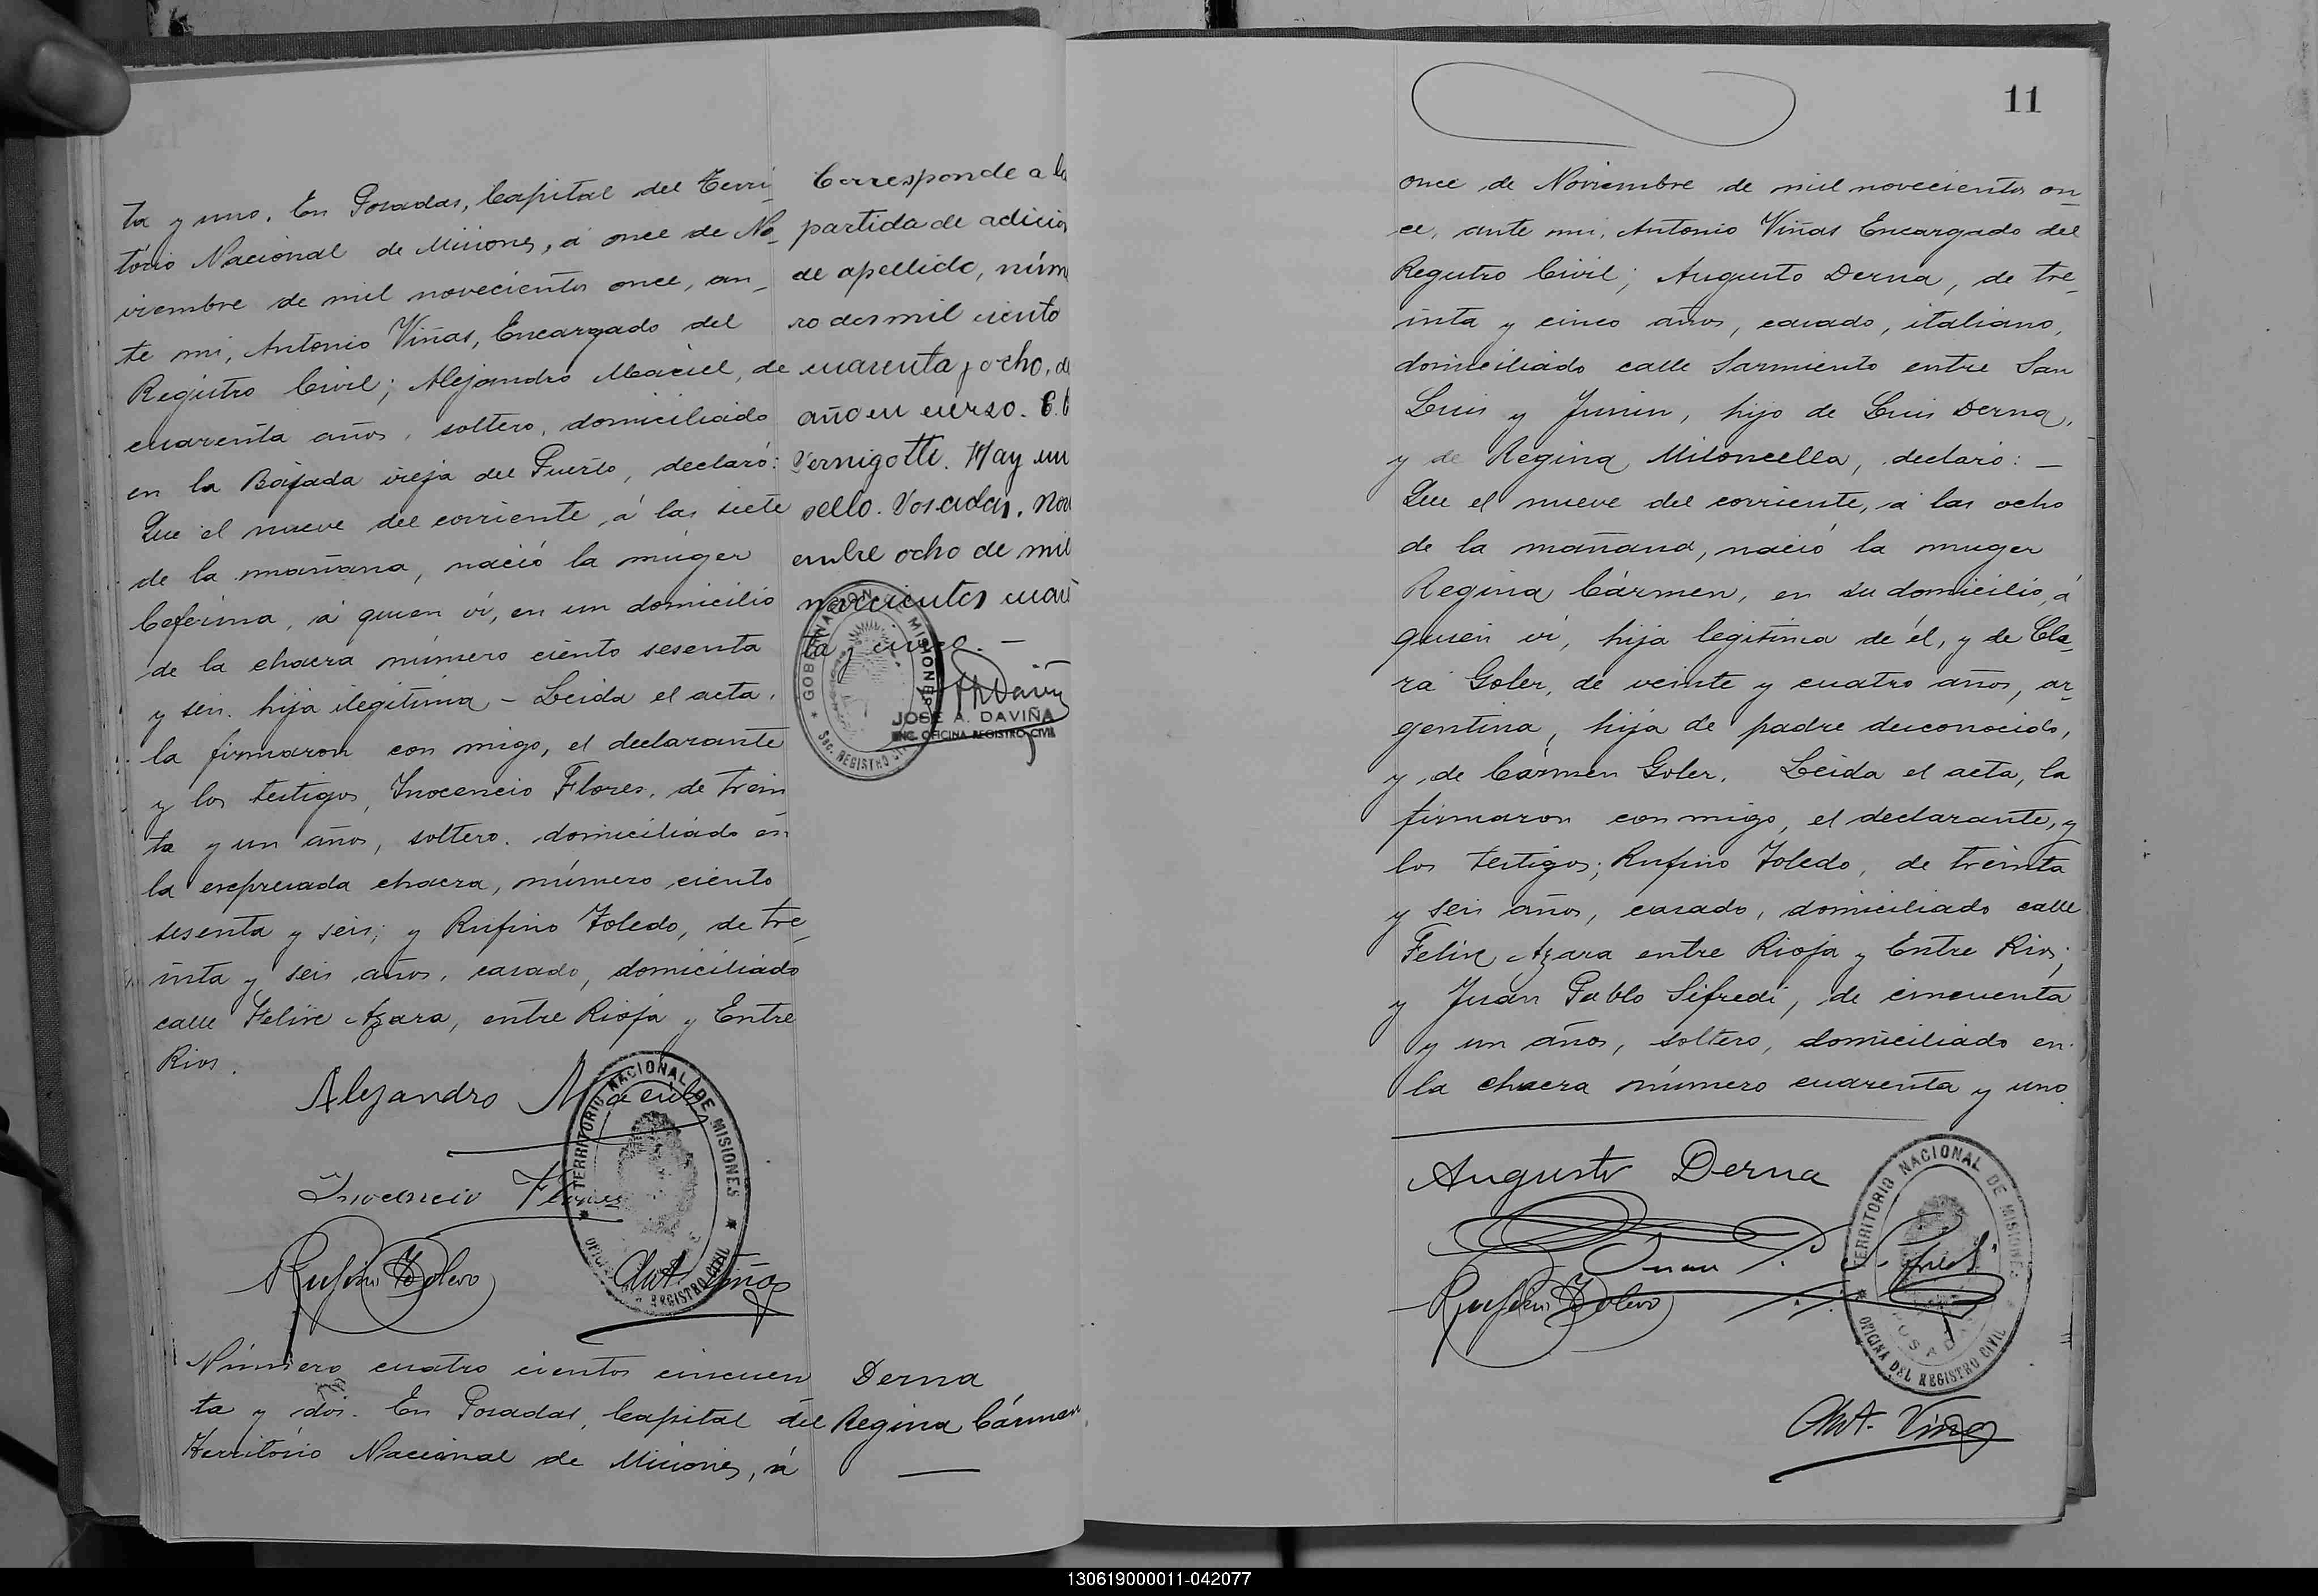 ta y uno. En Posadas, Capital del Terri-
torio Nacional de Misiones, á once de No-
viembre de mil novecientos once, an-
te mi, Antonio Viñas, Encargado del
Registro Civil; Alejandro Maciel, de
cuarenta años, soltero, domiciliado
en la Bajada vieja del Puerto, declaró:
Que el nueve del corriente, á las siete
de la mañana, nació la muger
Ceferina, á quien ví, en un domicilio
de la chacra número ciento sesenta
y seis. hija ilegitima - Leida el acta,
la firmaron con migo, el declarante
y los testigos, Inocencio Flores, de trein
ta y un años, soltero, domiciliado en
la expresada chacra, número ciento
sesenta y seis; y Rufino Toledo, de tre-
inta y seis años, casado, domiciliado
calle Felix Azara, entre Rioja y Entre
Rios.
Alejandro Maciel
Inocencio Flores
Rufino Toledo
Ant. Viñas
TERRITORIO NACIONAL DE MISIONES
OFICINA DEL REGISTRO CIVIL
Corresponde a la
partida de adicio
de apellido, núme
ro dos mil ciento
cuarenta y ocho, d
año en curso. C.
Vernigotti. Hay un
sello. Posadas, Nov
embre ocho de mil
novecientos cuare
ta y cinco. -
GOBERNACION MISIONES
Sec. REGISTRO CIVIL
JOSE A. DAVIÑA
ENC. OFICINA REGISTRO CIVIL
Número cuatro cientos cincuen
ta y dos. En Posadas, Capital del
Territorio Nacional de Misiones, á
Derna
Regina Cármen
11
once de Noviembre de mil novecientos on-
ce, ante mi, Antonio Viñas Encargado del
Registro Civil; Augusto Derna, de tre-
inta y cinco años, casado, italiano,
domiciliado calle Sarmiento entre San
Luis y Junin, hijo de Luis Derna,
y de Regina Miloncella, declaró: -
Que el nueve del corriente, á las ocho
de la mañana, nació la muger
Regina Cármen, en su domicilio, á
quien ví, hija legitima de él, y de Cla-
ra Goler, de veinte y cuatro años, ar-
gentina, hija de padre desconocido,
y de Cármen Goler. Leida el acta, la
firmaron con migo, el declarante, y
los testigos; Rufino Toledo, de treinta
y seis años, casado, domiciliado calle
Felix Azara entre Rioja y Entre Rios;
y Juan Pablo Sifredi, de cincuenta
y un años, soltero, domiciliado en
la chacra número cuarenta y uno.
Augusto Derna
Juan P. Sifredi
Rufino Toledo
TERRITORIO NACIONAL DE MISIONES
POSADAS
OFICINA DEL REGISTRO CIVIL
Ant. Viñas
130619000011-042077